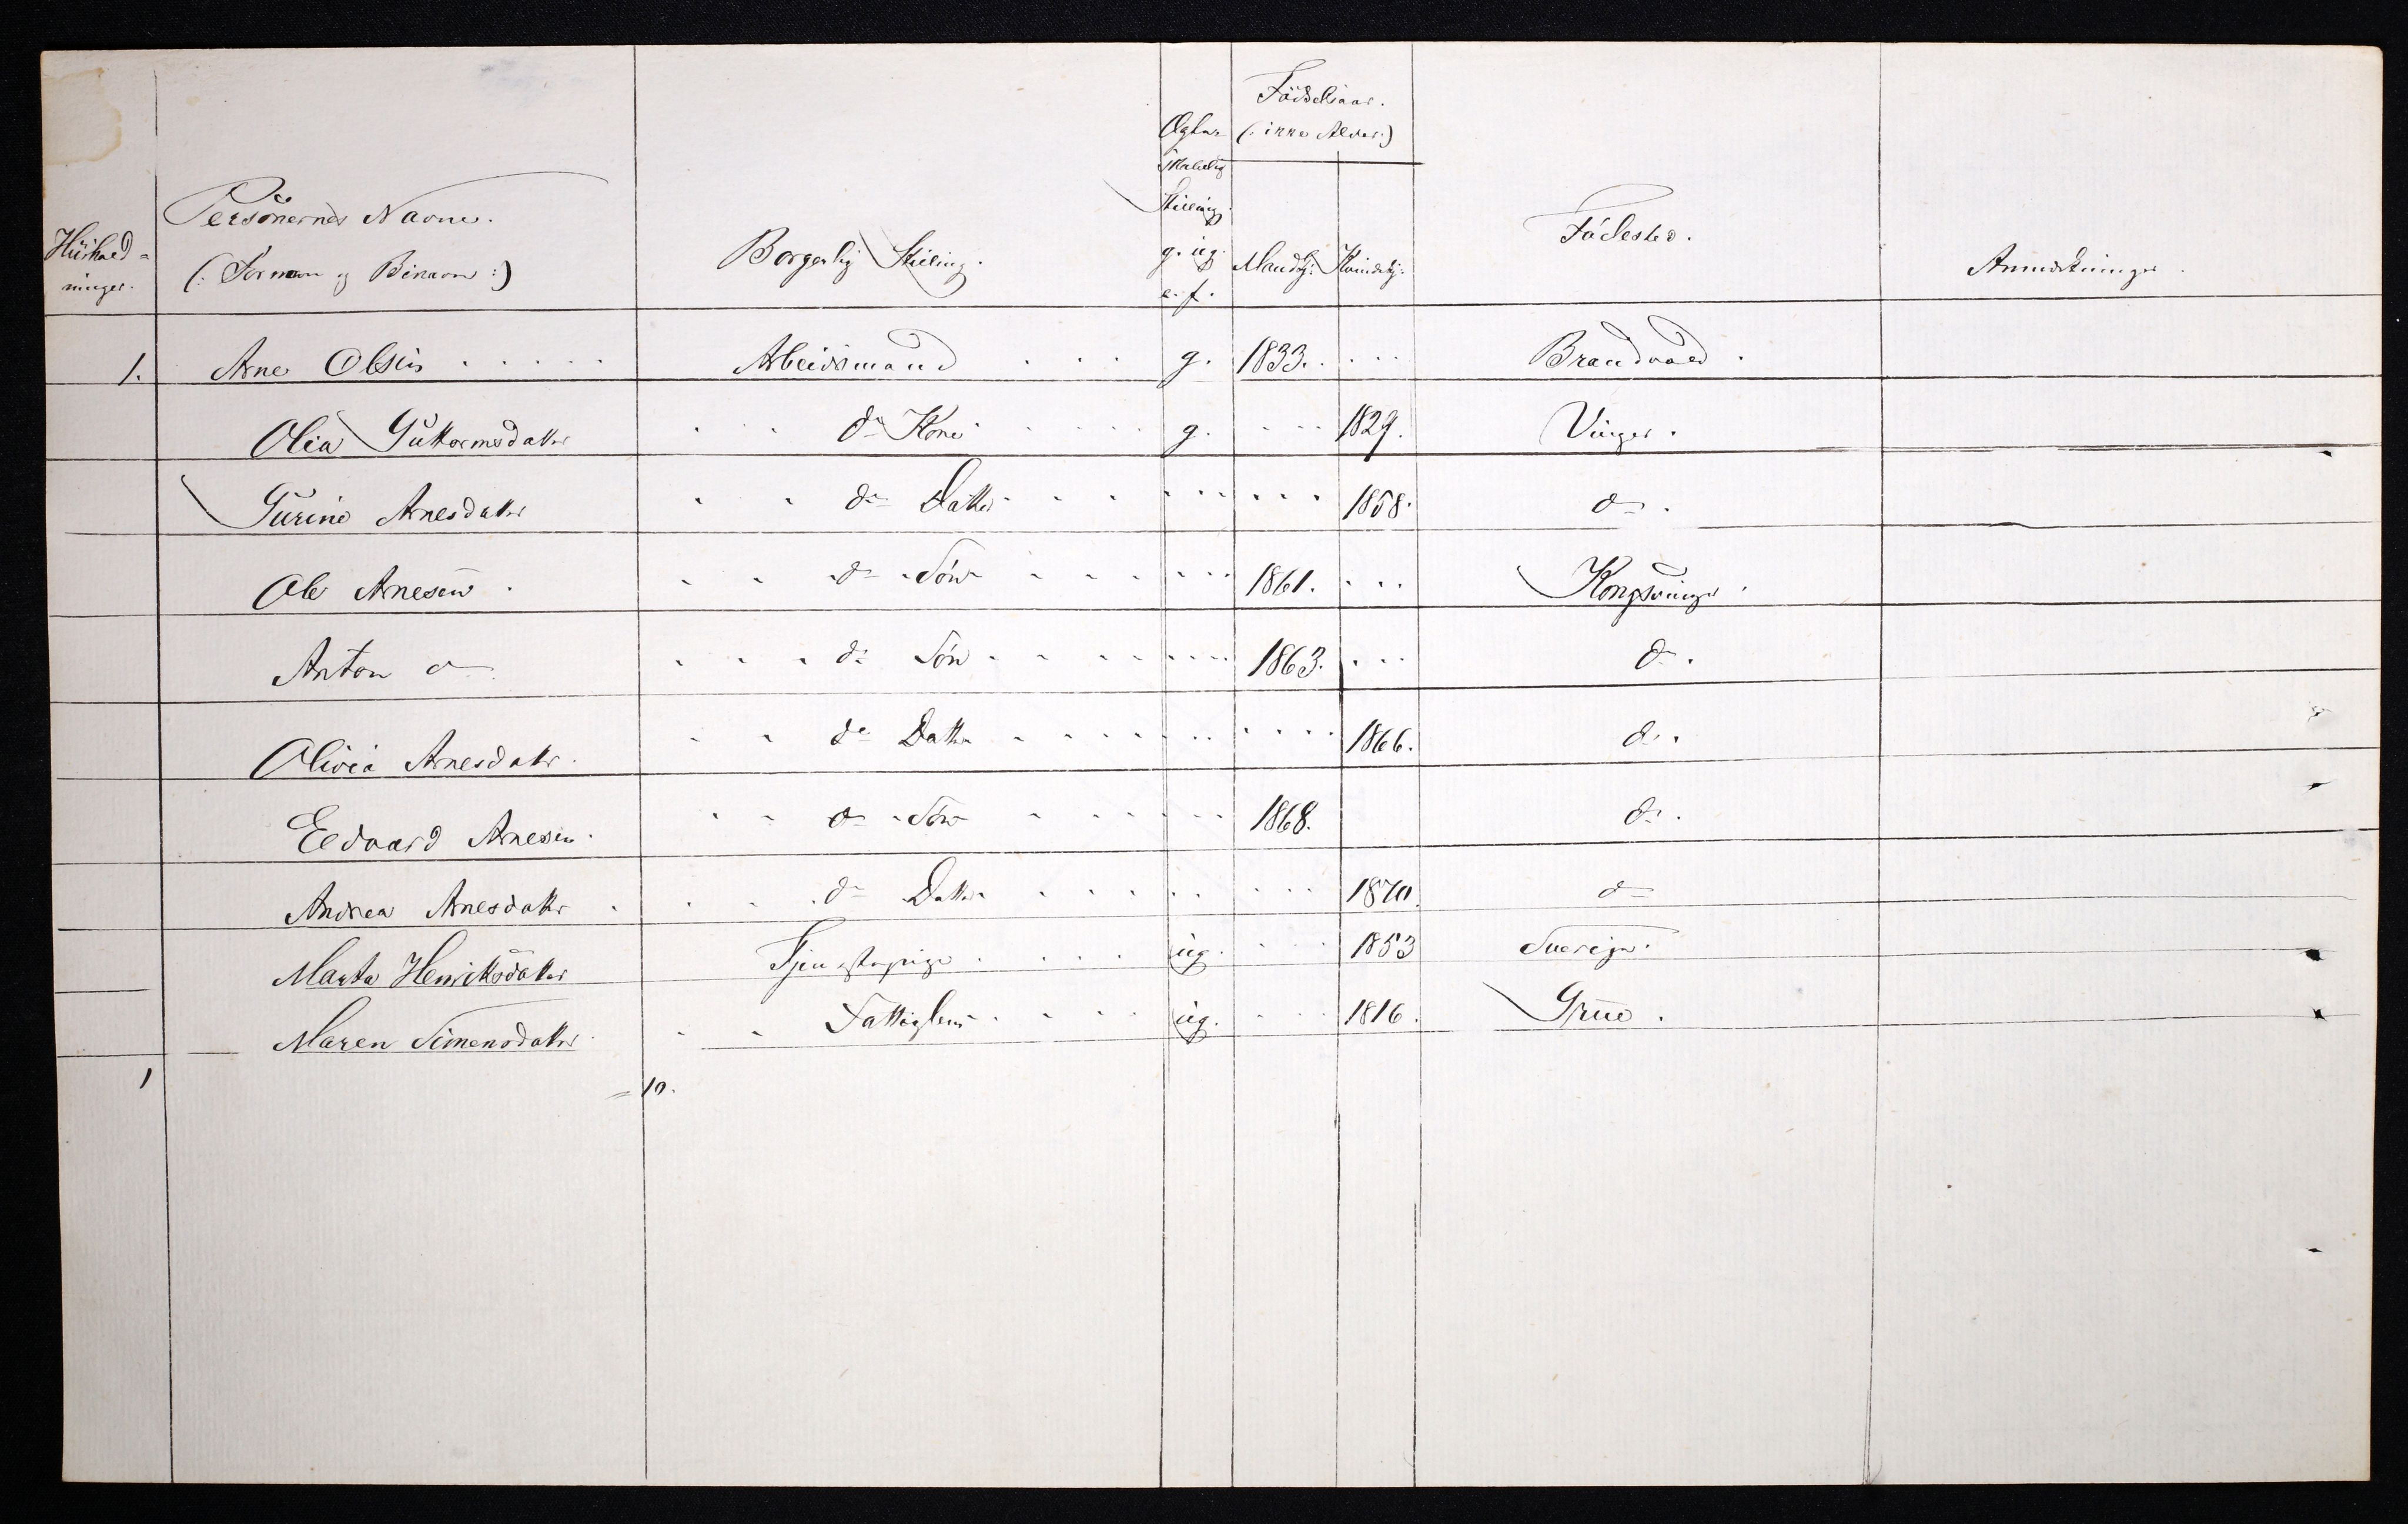 Hüshold=
ninger.
Personernes Navne.
(: Fornavn og Binavn :)
Borgerlig Stilling.
Ægte-
skabelig
Stilling.
g. ug.
e. f.
Födselsaar.
(: ikke Alder :)
Mandkj: Kvindekj:
Födested.
Anmærkninger.
1. Arne Olsen Arbeidsmand g. 1833. Brandvold.
Olia Guttormsdatter do Kone g. 1829. Vinger.
Gurine Arnesdatter do Datter 1858. do.
Ole Arnesen. do Sön 1861. Kongsvinger.
Anton do do Sön 1863. do.
Olivia Arnesdatter. do Datter 1866. do.
Eedvard Arnesen. do Sön 1868. do.
Andrea Arnesdatter. do Datter 1870. do
Marta Henriksdatter Tjenestepige ug. 1853 Sverige.
Maren Simensdatter. Fattiglem ug. 1816. Grue.
1 =10.